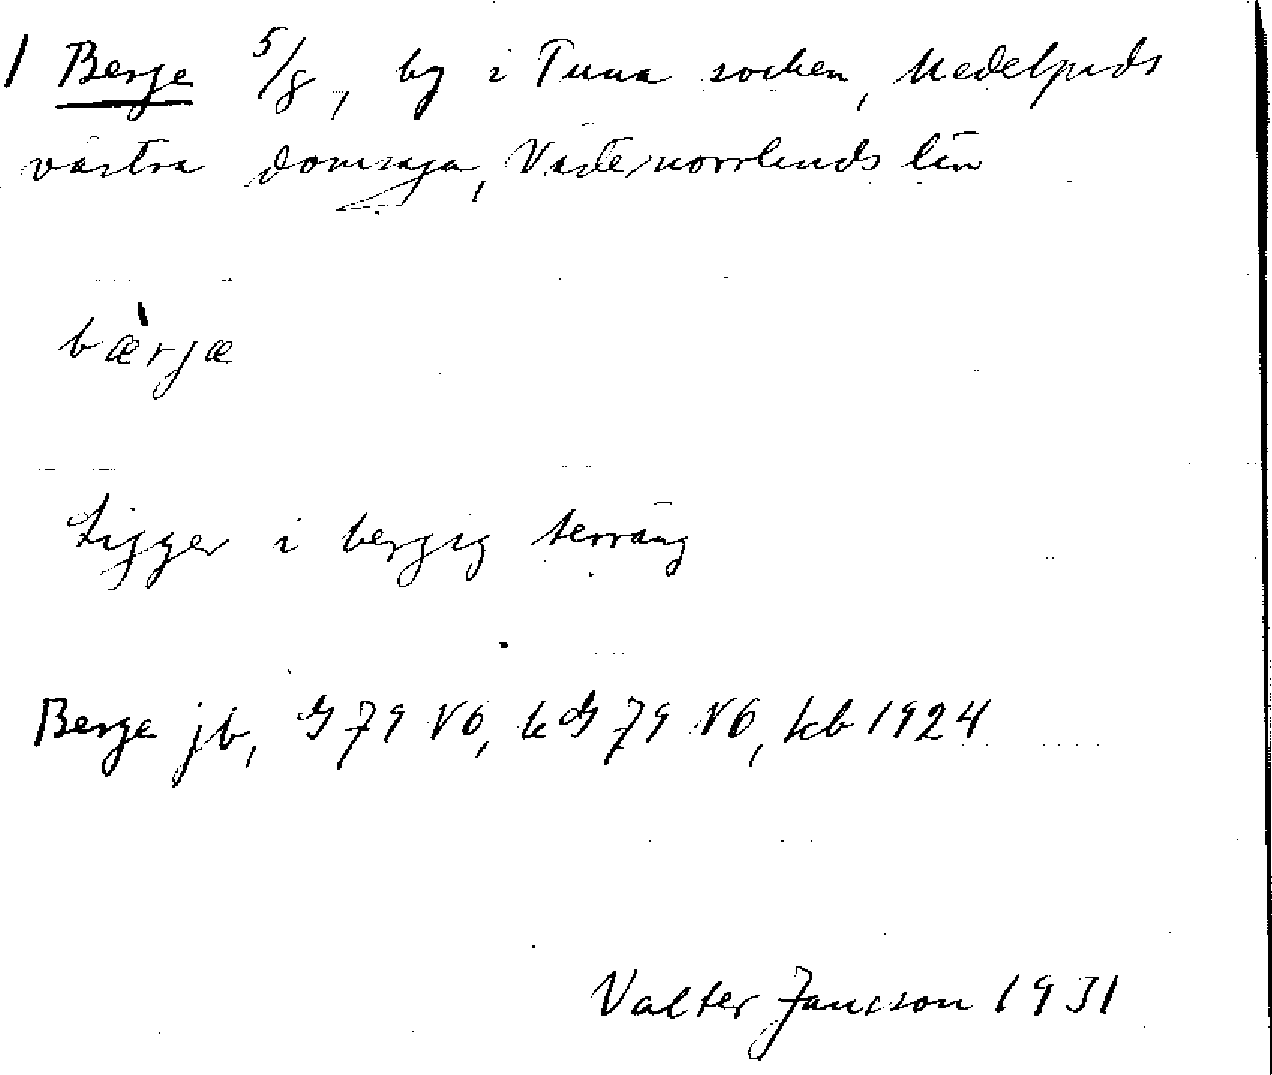 1 Berge 5/8, by i Tuna socken, Medelpads
västra domsaga, Västernorrlands län
bæ̀rjæ
Ligger i bergig terräng
Berge jb, G 79 VÖ, kG 79 VÖ, kb 1924
Valter Jansson 1931